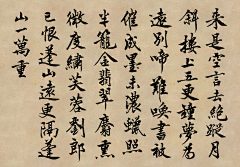 来是空言去絕蹤月
斜樓上五更鐘夢為
遠別啼難喚書被
催成墨未濃蠟照
半籠金翡翠麝熏
微度繡芙蓉劉郎
已恨蓬山遠更隔蓬
山一萬重